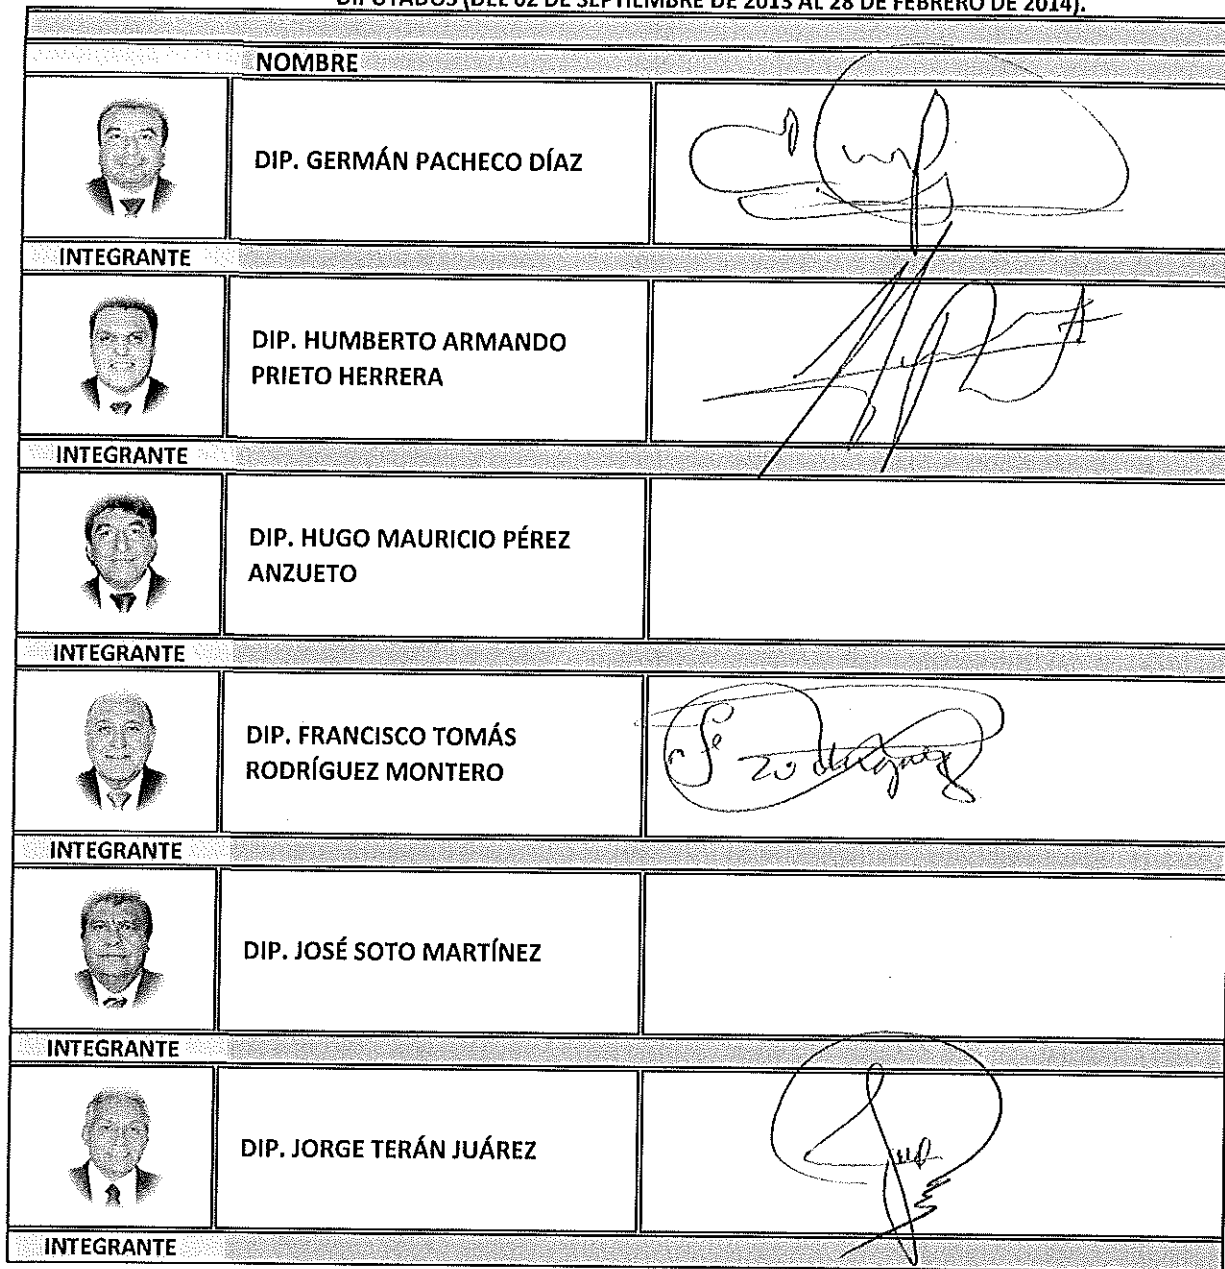 DIPUTADOS (DEL 02 DE SEPTIEMBRE DE 2013 AL 28 DE FEBRERO DE 2014).
NOMBRE
DIP. GERMÁN PACHECO DÍAZ
INTEGRANTE
DIP. HUMBERTO ARMANDO
PRIETO HERRERA
INTEGRANTE
DIP. HUGO MAURICIO PÉREZ
ANZUETO
INTEGRANTE
DIP. FRANCISCO TOMÁS
RODRÍGUEZ MONTERO
INTEGRANTE
DIP. JOSÉ SOTO MARTÍNEZ
INTEGRANTE
DIP. JORGE TERÁN JUÁREZ
INTEGRANTE